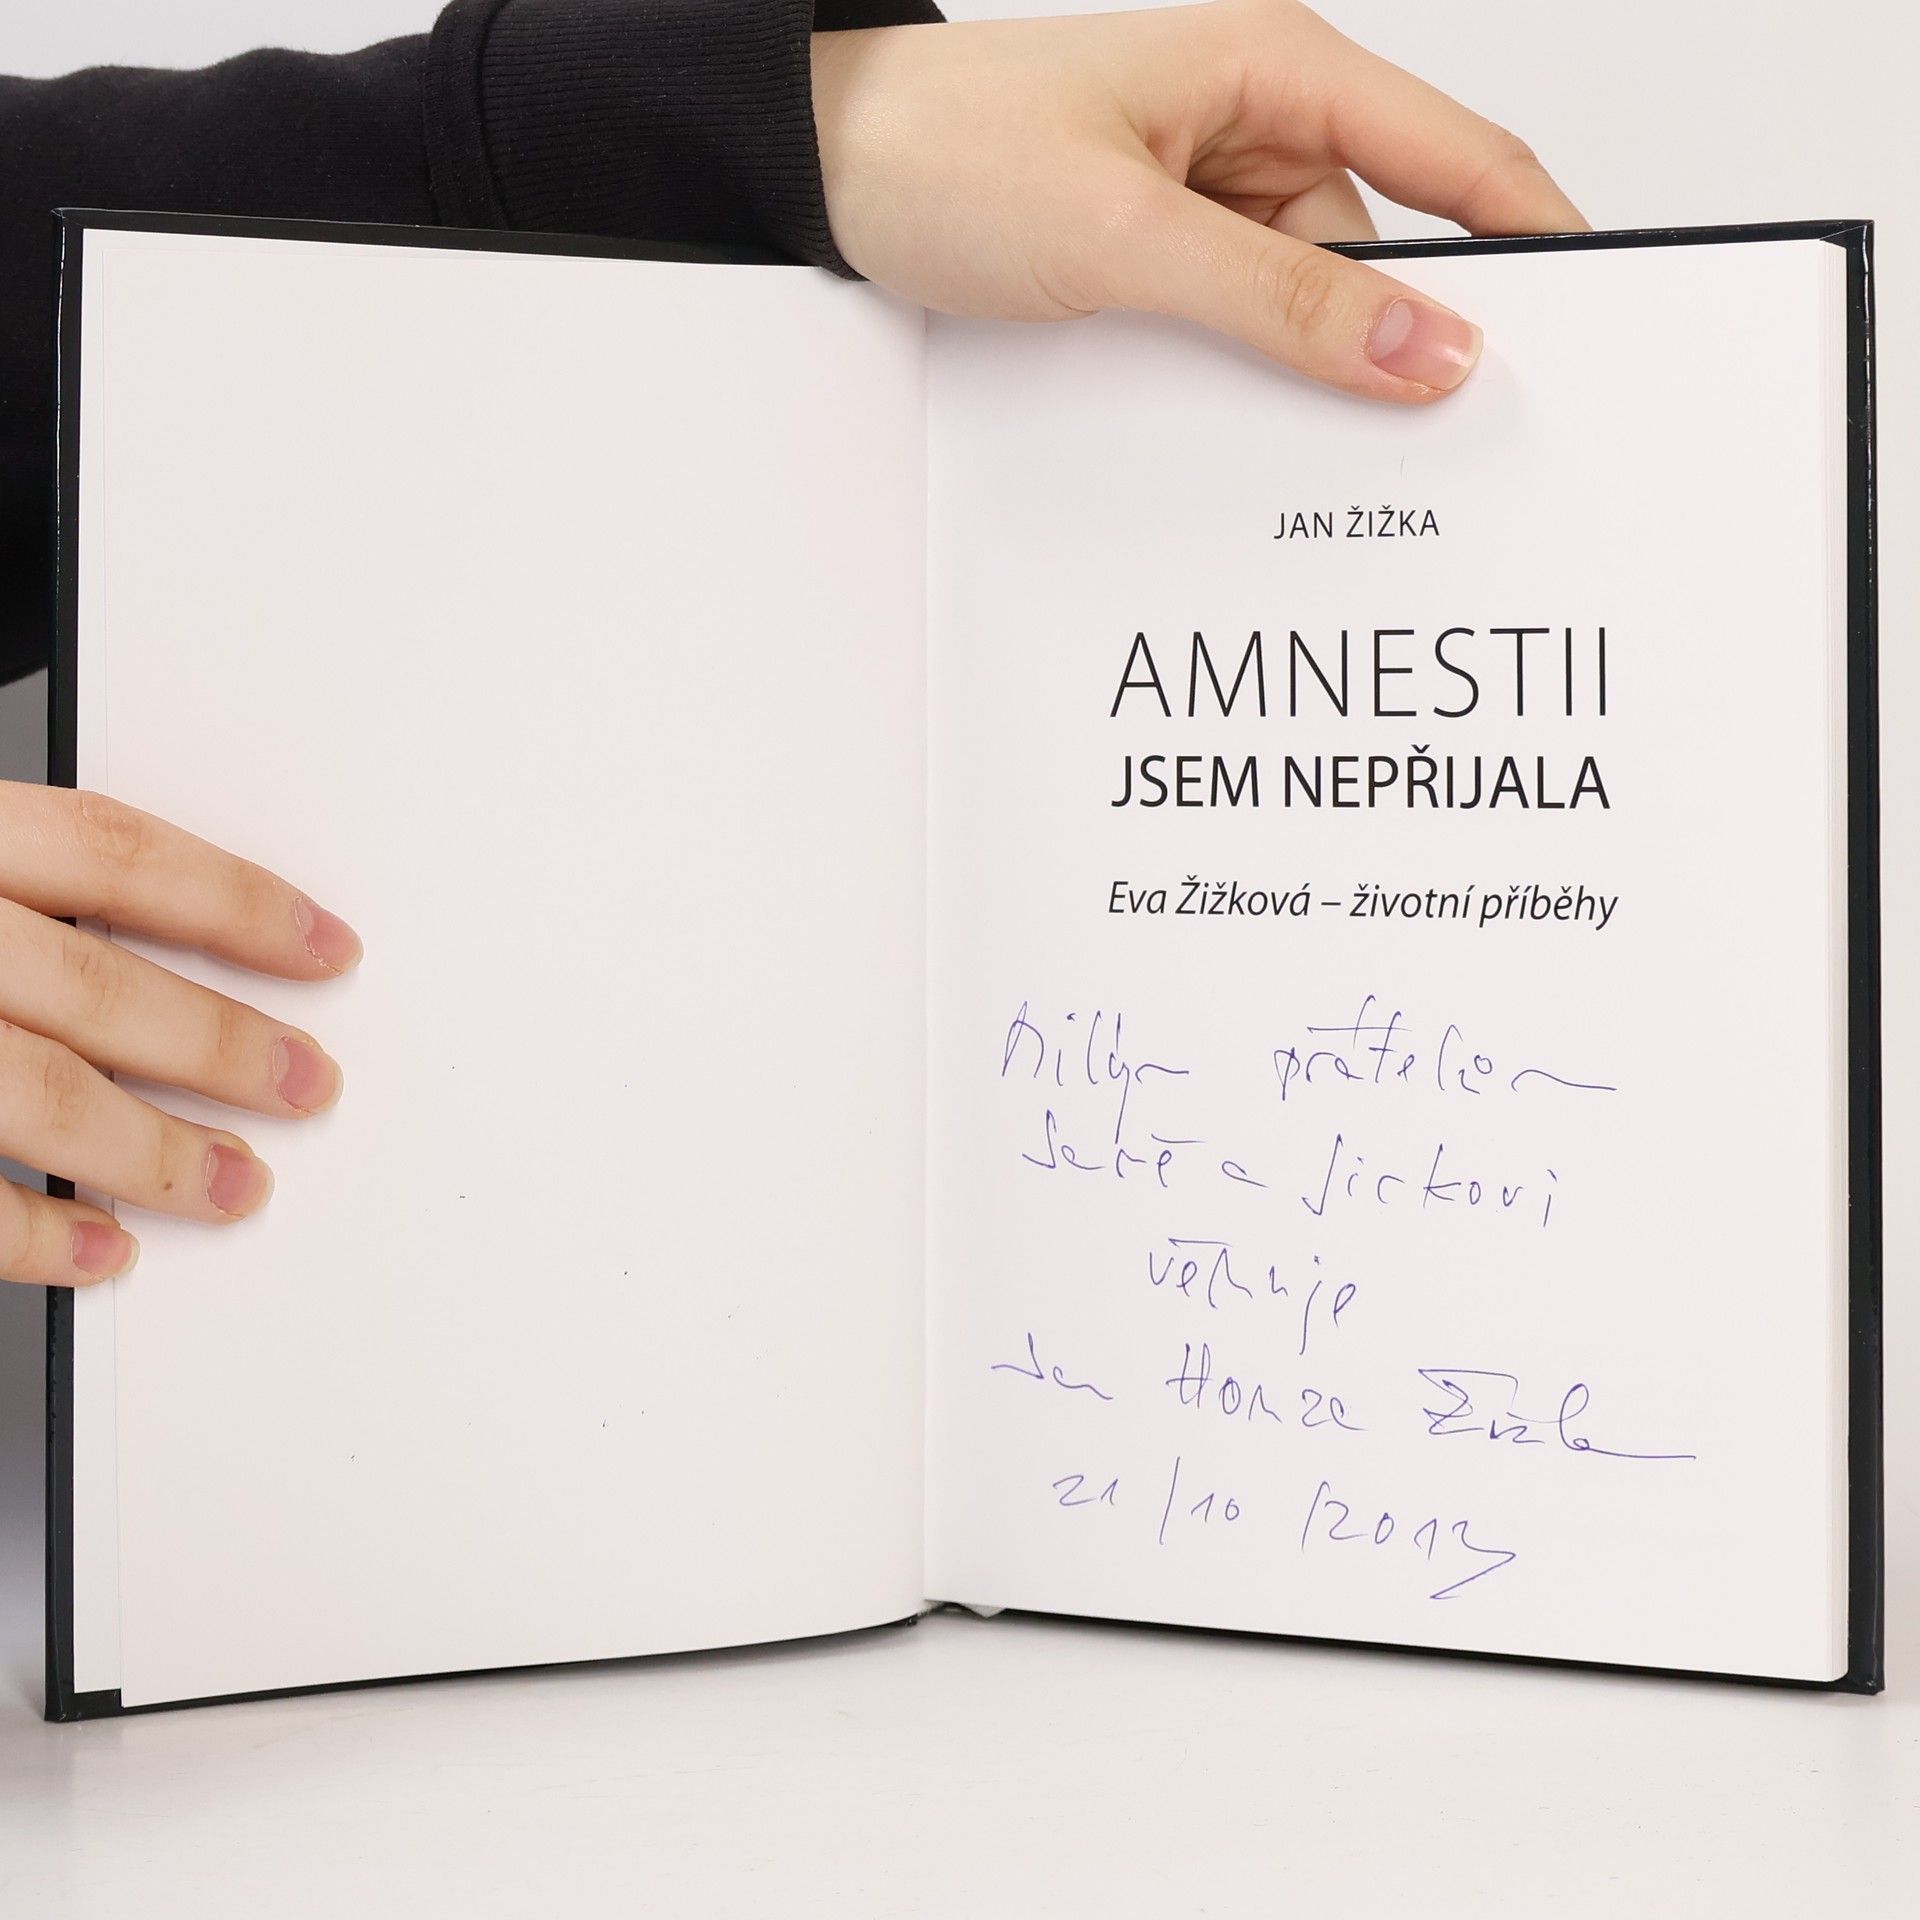 JAN ŽIŽKA
AMNESTII
JSEM NEPŘIJALA
Eva Žižková – životní příběhy
Milým přátelům
a Jirkovi
věnuje
Jan Honza Žižka
21/10/2013